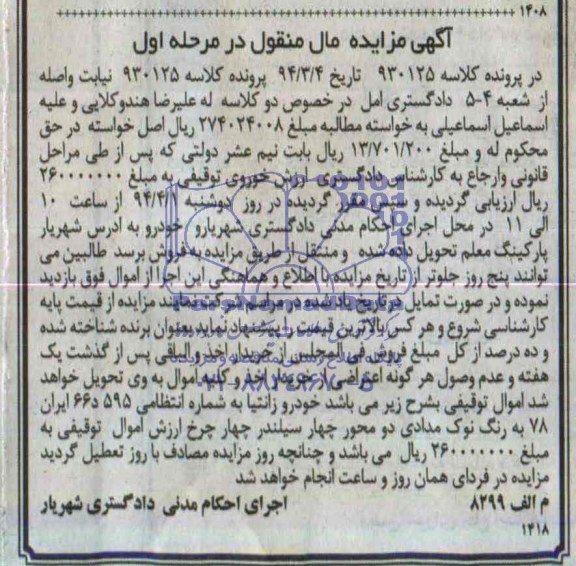 ۱۴۰۸
آگهی مزایده مال منقول در مرحله اول
در پرونده کلاسه ۹۳۰۱۲۵ تاریخ ۹۴/۳/۴ پرونده کلاسه ۹۳۰۱۲۵ نیابت واصله
از شعبه ۴-۵ دادگستری امل در خصوص دو کلاسه له علیرضا هندوکلایی و علیه
اسماعیل اسماعیلی به خواسته مطالبه مبلغ ۲۷۴۰۲۴۰۰۸ ریال اصل خواسته در حق
محکوم له و مبلغ ۱۳/۷۰۱/۲۰۰ ریال بابت نیم عشر دولتی که پس از طی مراحل
قانونی وارجاع به کارشناس دادگستری ارزش خوروی توقیفی به مبلغ ۲۶۰۰۰۰۰۰۰
ریال ارزیابی گردیده و سپس مقرر گردیده در روز دوشنبه ۹۴/۴/۱ از ساعت ۱۰
الی ۱۱ در محل اجرای احکام مدنی دادگستری شهریارو خودرو به ادرس شهریار
پارکینگ معلم تحویل داده شده و منتقل از طریق مزایده به فروش برسد طالبین می
توانند پنج روز جلوتر از تاریخ مزایده با اطلاع و هماهنگی این اجرا از اموال فوق بازدید
نموده و در صورت تمایل در تاریخ یاد شده در مراسم شرکت نمایند مزایده از قیمت پایه
کارشناسی شروع و هر کس بالاترین قیمت را پیشنهاد نماید بعنوان برنده شناخته شده
و ده درصد از کل مبلغ فروش فی المجلس از خریدار اخذ و الباقی پس از گذشت یک
هفته و عدم وصول هر گونه اعتراضی از خریدار اخذ و کلیه اموال به وی تحویل خواهد
شد اموال توقیفی بشرح زیر می باشد خودرو زانتیا به شماره انتظامی ۵۹۵ د۶۶ ایران
۷۸ به رنگ نوک مدادی دو محور چهار سیلندر چهار چرخ ارزش اموال توقیفی به
مبلغ ۲۶۰۰۰۰۰۰۰ ریال می باشد و چنانچه روز مزایده مصادف با روز تعطیل گردید
مزایده در فردای همان روز و ساعت انجام خواهد شد
م الف ۸۲۹۹ اجرای احکام مدنی دادگستری شهریار
۱۴۱۸